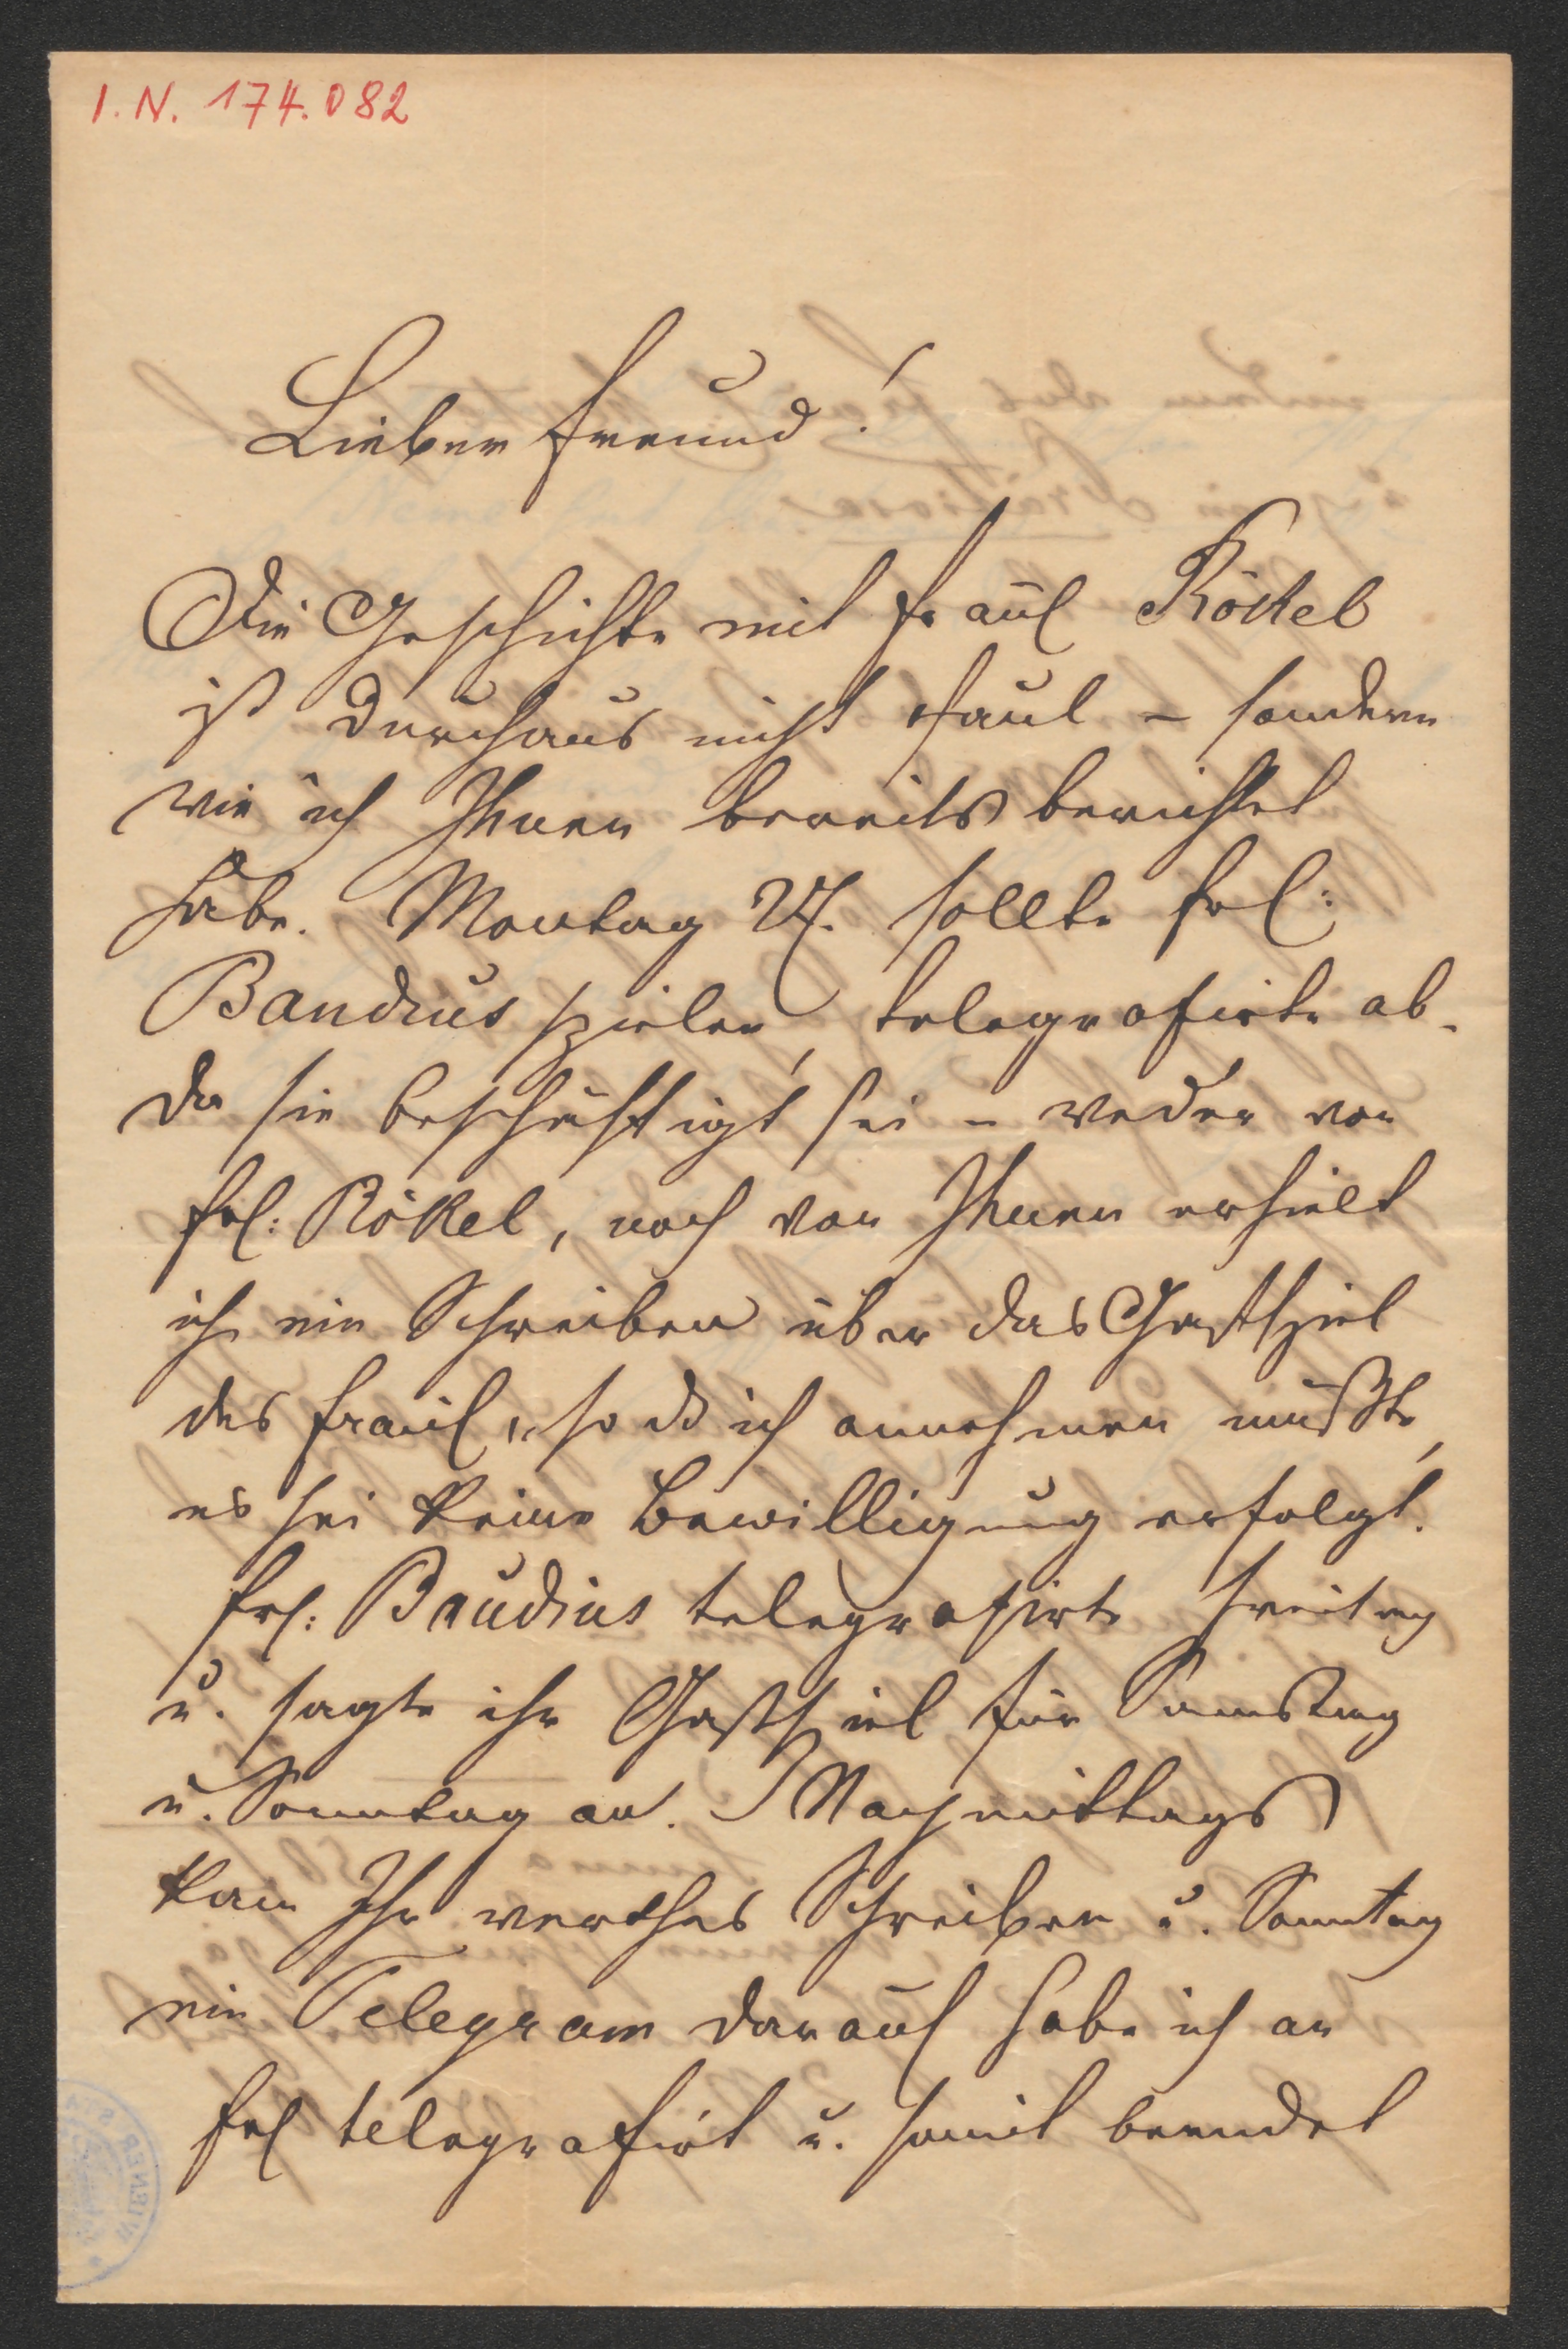 I. N. 174.082
Lieber Freund!
Die Geschichte mit Fräul Röckel
ist durchaus nicht faul – sondern
wie ich Ihnen bereits berichtet
habe. Montag sollte Frl:
Baudius spielen, telegrafirte ab.
da sie beschäftigt sei – weder von
Frl: Rökel, noch von Ihnen erhielt
ich ein Schreiben über das Gastspiel
des Fräul, so dß ich annehmen mußte,
es sei keine Bewilligung erfolgt.
Frl: Baudius telegrafirte Freitag
u. sagte ihr Gastspiel für Samstag
u. Sonntag an. Nachmittags
kam Ihr werthes Schreiben u. Sonntag
ein Telegram darauf habe ich an
Frl telegrafirt u. somit beendet
WIENER